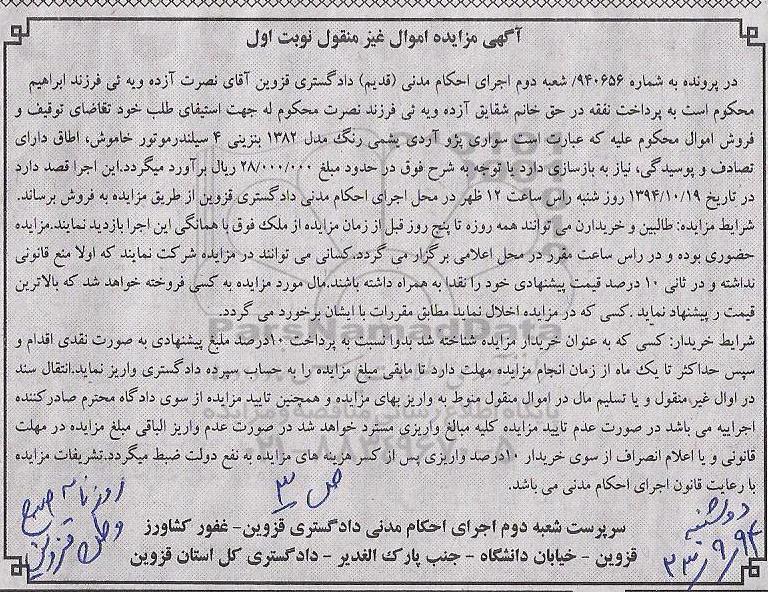 آگهی مزایده اموال غیر منقول نوبت اول
در پرونده به شماره ۹۴۰۶۵۶/ شعبه دوم اجرای احکام مدنی (قدیم) دادگستری قزوین آقای نصرت آزده ویه ئی فرزند ابراهیم
محکوم است به پرداخت نفقه در حق خانم شقایق آزده ویه ئی فرزند نصرت محکوم له جهت استیفای طلب خود تقاضای توقیف و
فروش اموال محکوم علیه که عبارت است سواری پژو آردی یشمی رنگ مدل ۱۳۸۲ بنزینی ۴ سیلندرموتور خاموش، اطاق دارای
تصادف و پوسیدگی، نیاز به بازسازی دارد یا توجه به شرح فوق در حدود مبلغ ۲۸/۰۰۰/۰۰۰ ریال برآورد میگردد.این اجرا قصد دارد
در تاریخ ۱۳۹۴/۱۰/۱۹ روز شنبه راس ساعت ۱۲ ظهر در محل اجرای احکام مدنی دادگستری قزوین از طریق مزایده به فروش برساند.
شرایط مزایده: طالبین و خریدارن می توانند همه روزه تا پنج روز قبل از زمان مزایده از ملک فوق با همانگی این اجرا بازدید نمایند.مزایده
حضوری بوده و در راس ساعت مقرر در محل اعلامی برگزار می گردد.کسانی می توانند در مزایده شرکت نمایند که اولا منع قانونی
نداشته و در ثانی ۱۰ درصد قیمت پیشنهادی خود را نقدا به همراه داشته باشند.مال مورد مزایده به کسی فروخته خواهد شد که بالاترین
قیمت ر پیشنهاد نماید .کسی که در مزایده اخلال نماید مطابق مقررات با ایشان برخورد می گردد.
ParsNamadData
شرایط خریدار: کسی که به عنوان خریدار مزایده شناخته شد بدوا نسبت به پرداخت ۱۰درصد ملبغ پیشنهادی به صورت نقدی اقدام و
سپس حداکثر تا یک ماه از زمان انجام مزایده مهلت دارد تا مابقی مبلغ مزایده را به حساب سپرده دادگستری واریز نماید.انتقال سند
در اوال غیر منقول و یا تسلیم مال در اموال منقول منوط به واریز بهای مزایده و همچنین تایید مزایده از سوی دادگاه محترم صادرکننده
پایگاه اطلاع رسانی مناقصه و مزایده
اجراییه می باشد در صورت عدم تایید مزایده کلیه مبالغ واریزی مسترد خواهد شد در صورت عدم واریز الباقی مبلغ مزایده در مهلت
قانونی و یا اعلام انصراف از سوی خریدار ۱۰درصد واریزی پس از کسر هزینه های مزایده به نفع دولت ضبط میگردد.تشریفات مزایده
با رعایت قانون اجرای احکام مدنی می باشد.
ص ۳
روزنامه صبح
سرپرست شعبه دوم اجرای احکام مدنی دادگستری قزوین- غفور کشاورز
دوشنبه
قزوین - خیابان دانشگاه - جنب پارک الغدیر - دادگستری کل استان قزوین
۲۳/۹/۹۴